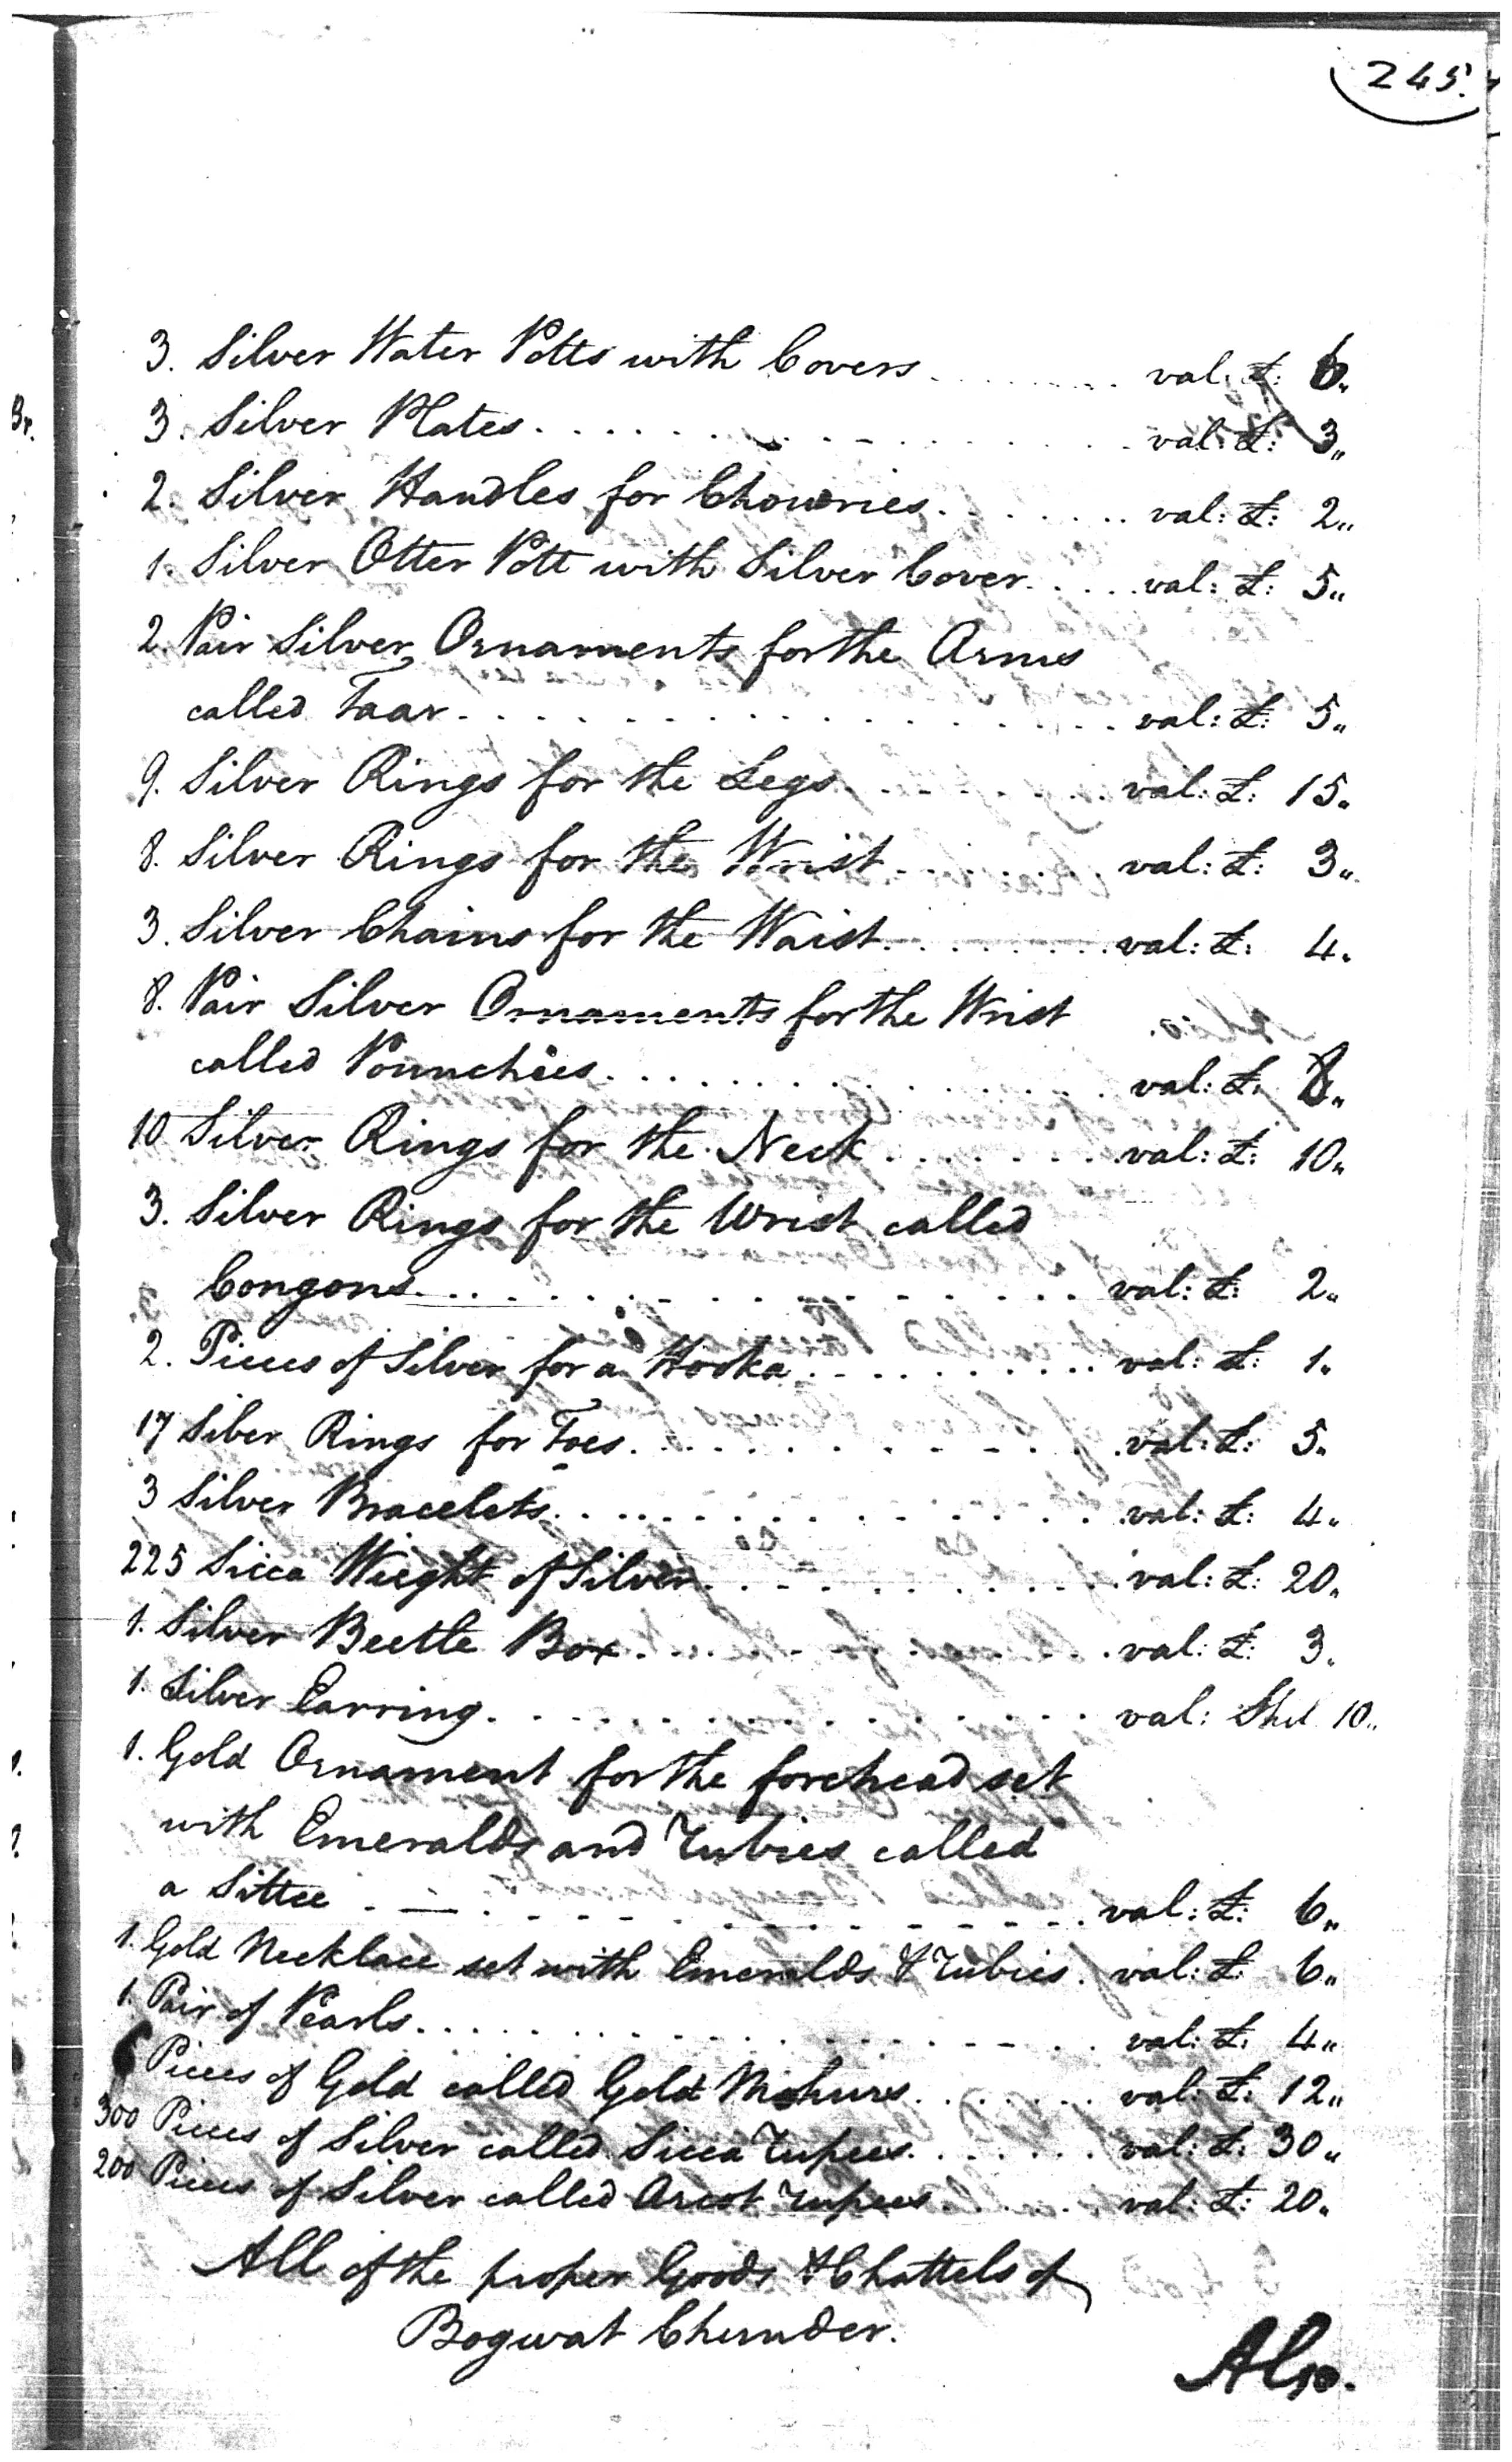 245.
3. Silver Water Potts with Covers ........ val: £: 6"
3. Silver Plates ................ val: £: 3"
2. Silver Handles for Chowries ........ val: £: 2"
1. Silver Otter Pott with Silver Cover ..... val: £: 5"
2. Pair Silver Ornaments for the Arms
called Taar .................. val: £: 5"
9. Silver Rings for the Legs ........ val: £: 15"
8. Silver Rings for the Wrist ....... val: £: 3"
3. Silver Chains for the Waist ........ val: £: 4"
8. Pair Silver Ornaments for the Wrist
called Pounchies ............... val: £: 8"
10 Silver Rings for the Neck ....... val: £: 10"
3. Silver Rings for the Wrist called
Congons .................. val: £: 2"
2. Pieces of Silver for a Hooka ......... val: £: 1"
17 Silver Rings for Toes ............ val: £: 5"
3 Silver Bracelets .............. val: £: 4"
225 Sicca Wieght of Silver ........... val: £: 20"
1. Silver Beetle Box ............ val: £: 3"
1. Silver Earring ................ val: Shil 10"
1. Gold Ornament for the forehead set
with Emeralds and rubies called
a Sittee ................ val: £: 6"
1. Gold Necklace set with Emeralds & rubies. val: £: 6"
1. Pair of Pearls ................ val: £: 4"
6 Pieces of Gold called Gold Mohurs ....... val: £: 12"
300 Pieces of Silver called Sicca rupees ....... val: £: 30"
200 Pieces of Silver called Arcot rupees ...... val: £: 20"
All of the proper Goods & Chattels of
Bogwat Chunder.
Also.
Br.